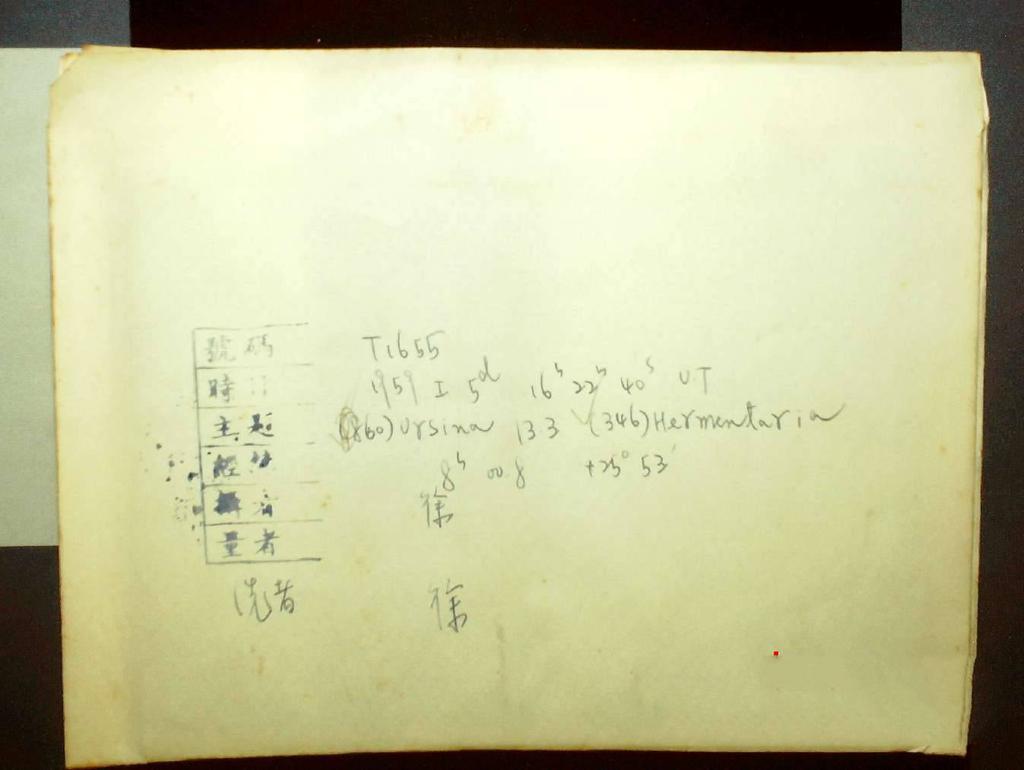 號碼 T1655
時 1959 I 5d 16h 22m 40s UT
主題 (860) Ursina 13.3 (346) Hermentaria
經 8h 00.8 +25° 53'
攝者 徐
量者
洗者 徐